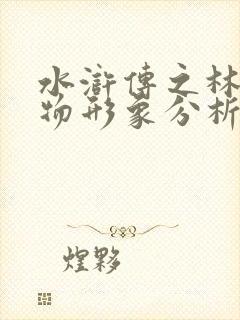 水滸傳之林
物形象分析
煌夥